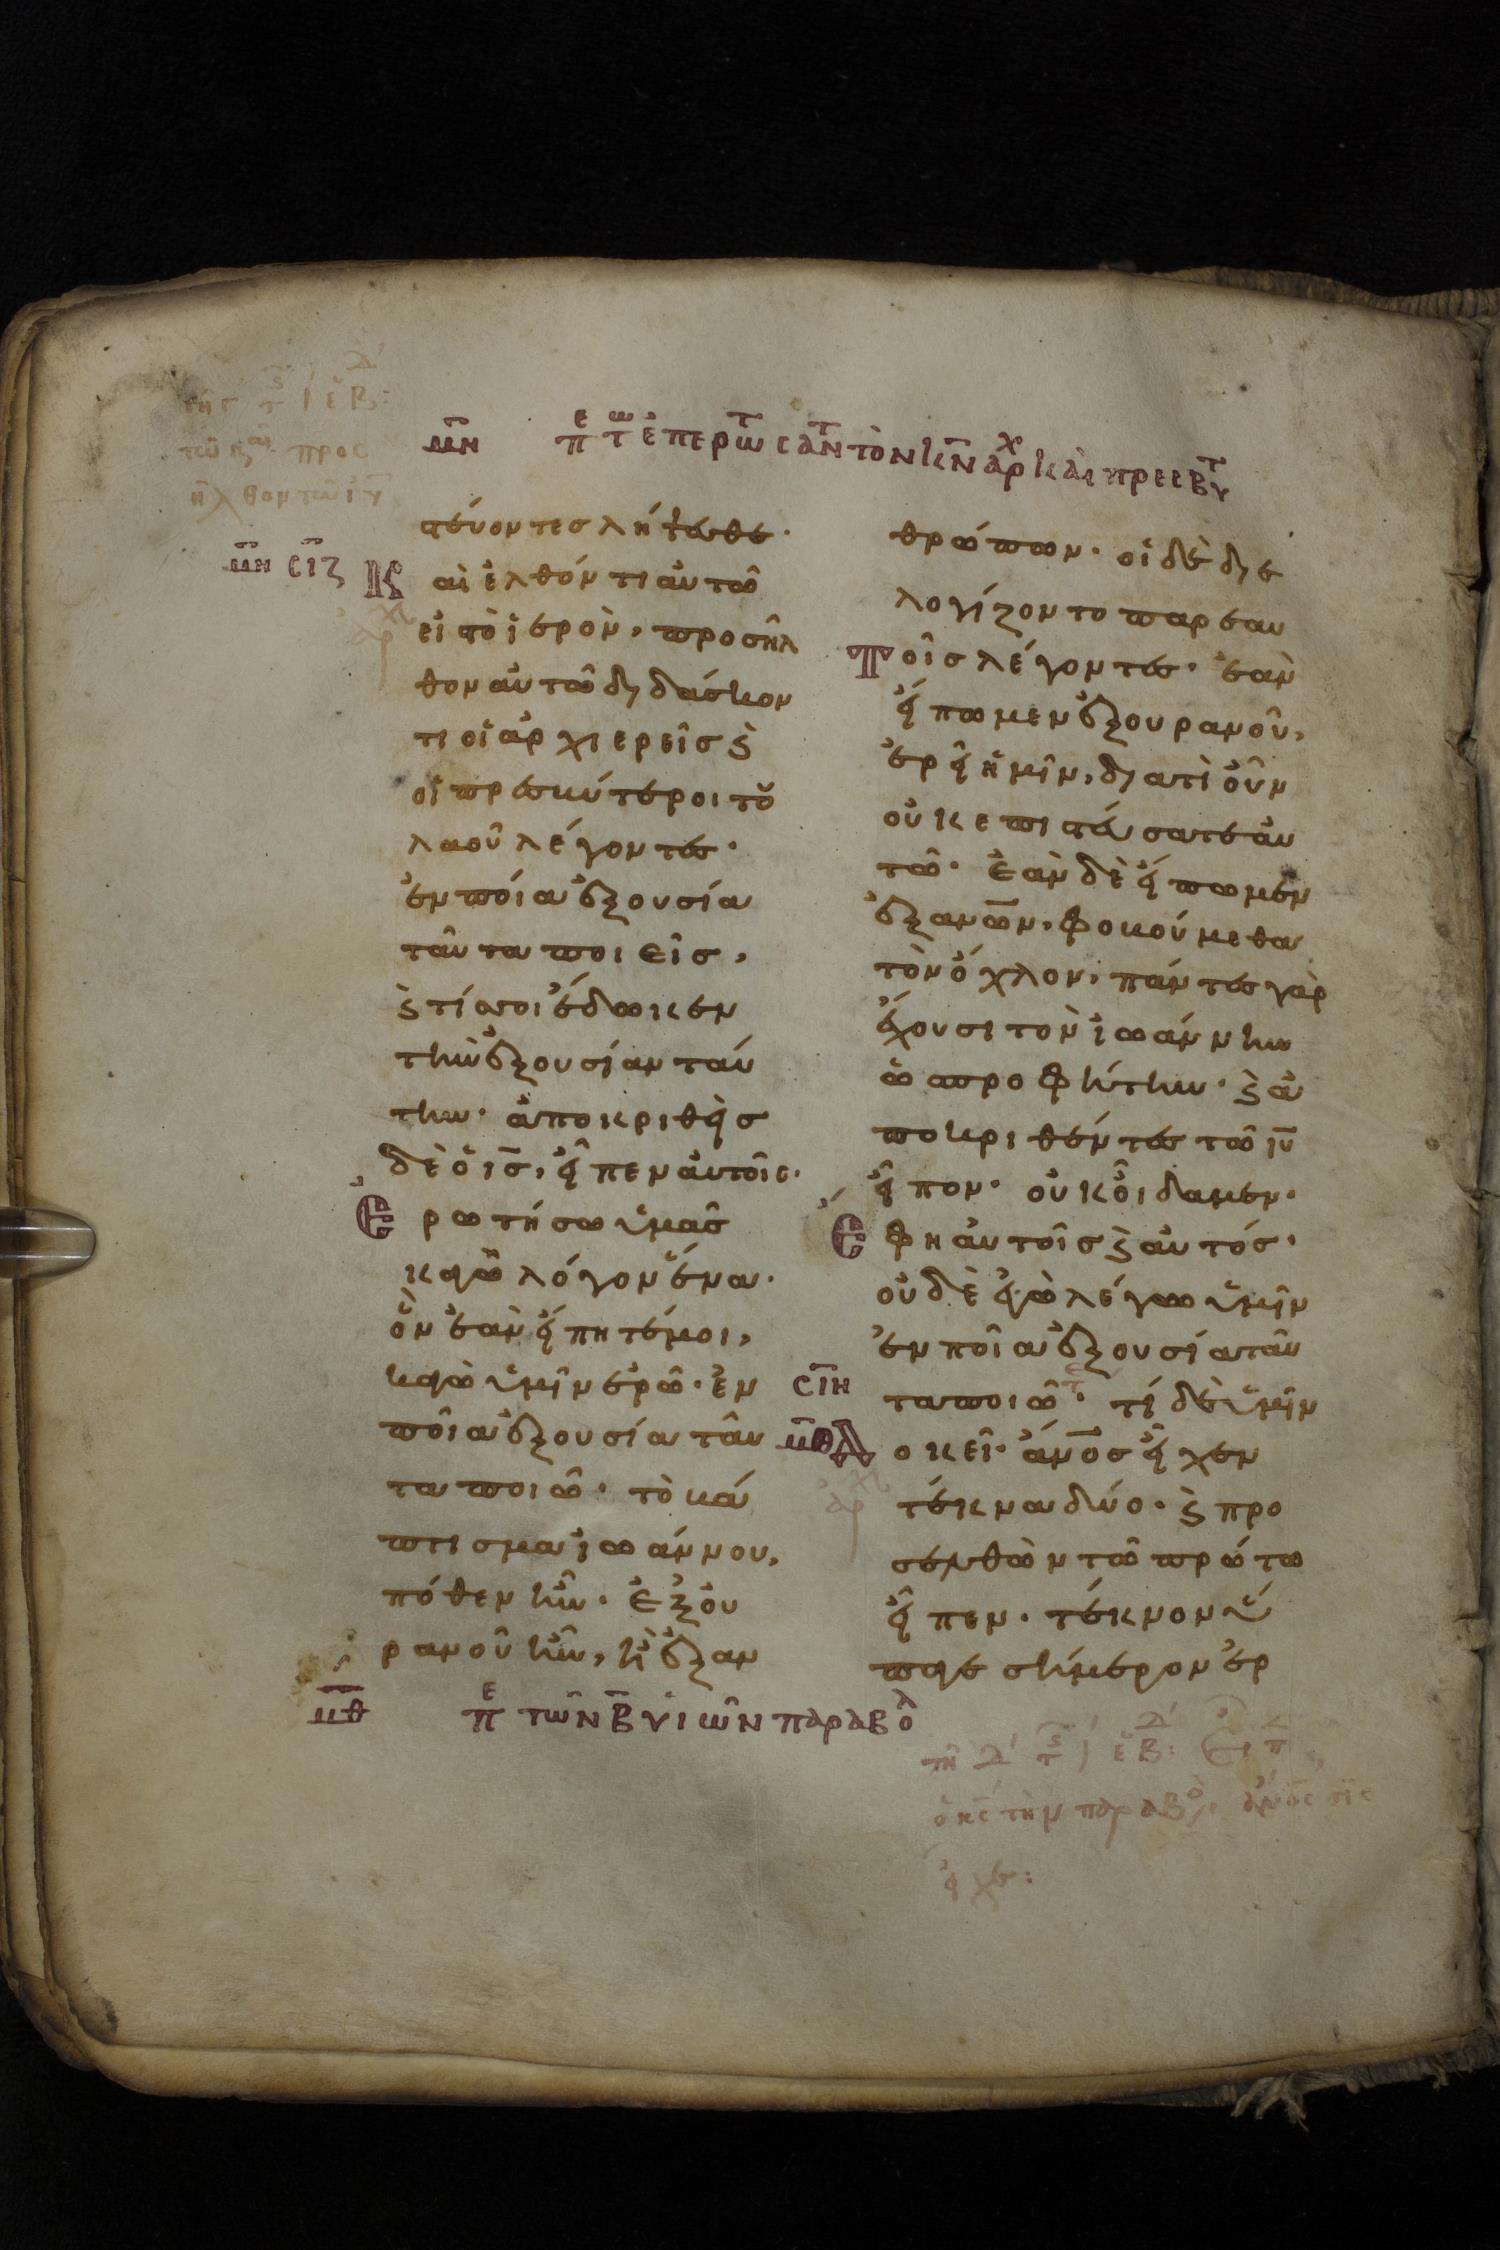 μη πε τω ἐπερωτ σαντ τὸν κν ἀρχ καὶ πρεσβυτ
τεύοντεσ λήψεσθε·
μη σιζ Καὶ ἐλθόντι αὐτῶ
εἰ τὸ ἱερὸν, προσῆλ
θον αὐτῶ διδάσκον
τι οἱ ἀρχιερεῖσ ϗ
οἱ πρεσβύτεροι τοῦ
λαοῦ λέγοντεσ·
ἐν ποία ἐξουσία
ταῦτα ποιεῖσ,
ϗ τίσ σοι ἔδωκεν
τὴν ἐξουσίαν ταύ
την· ἀποκριθεὶσ
δὲ ὁ ισ, εἶπεν αὐτοῖς·
Ἐρωτήσω ὑμᾶσ
κἀγῶ λόγον ἕνα·
ὃν ἐὰν εἴπητέ μοι,
κἀγὼ ὑμῖν ἐρῶ· ἐν
ποῖα ἐξουσία ταῦ
τα ποιῶ· τὸ βά
πτισμα ἰωάννου,
πόθεν ἦν· ἐξ οὐ
ρανοῦ ἦν, ἢ ἐξ αν
θρώπων· οἱ δὲ διε
λογίζοντο παρ εαυ
Τοῖσ λέγοντεσ· ἐὰν
εἴπωμεν ἐξ ουρανοῦ,
ἐρεῖ ἡμῖν, διατὶ οὖν
οὐκ επιστεύσατε αὐ
τῶ· ἐὰν δὲ εἴπωμεν
ἐξ ανων, φοβούμεθα
τὸν ὄχλον, πάντεσ γὰρ
ἔχουσι τὸν ἰωάννην
ὡσ προφήτην· ϗ ἀ
ποκριθέντεσ τῶ ιυ
εἶπον· οὐκ οἴδαμεν·
Ἔφη αὐτοῖσ ϗ αὐτόσ·
οὐδὲ ἐγὼ λέγω ὑμῖν
ἐν ποῖα ἐξουσία ταῦ
σιη τα ποιῶ· τί δὲ ὑμῖν
μθ Δοκεῖ· ἄνοσ εἶχεν
τέκνα δύο· ϗ προ
σελθὼν τῶ πρώτω
εἶπεν· τέκνον ὕ
παγε σήμερον ἐρ
μθ πε τῶν β υἱῶν παραβολ
τὴν παραβο